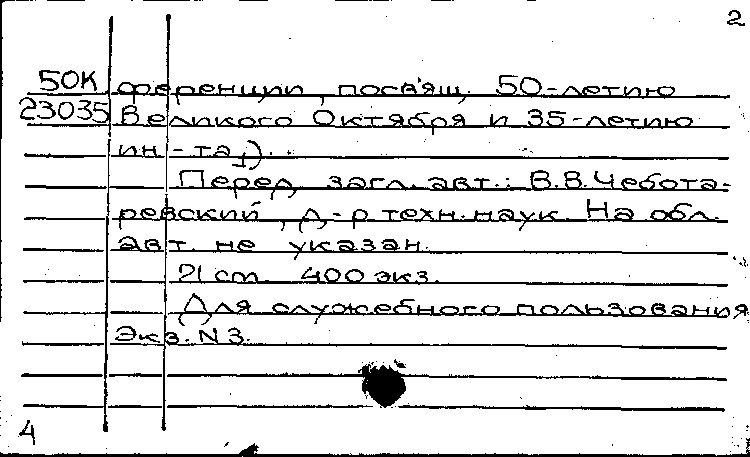 2
50К ференции, посвящ. 50-летию
23035 Великого Октября и 35-летию
ин-та).
Перед загл. авт.: В.В. Чебота-
ревский, д-р техн. наук. На обл.
авт. не указан.
21 ст. 400 экз.
Для служебного пользования
Экз. N 3.
4